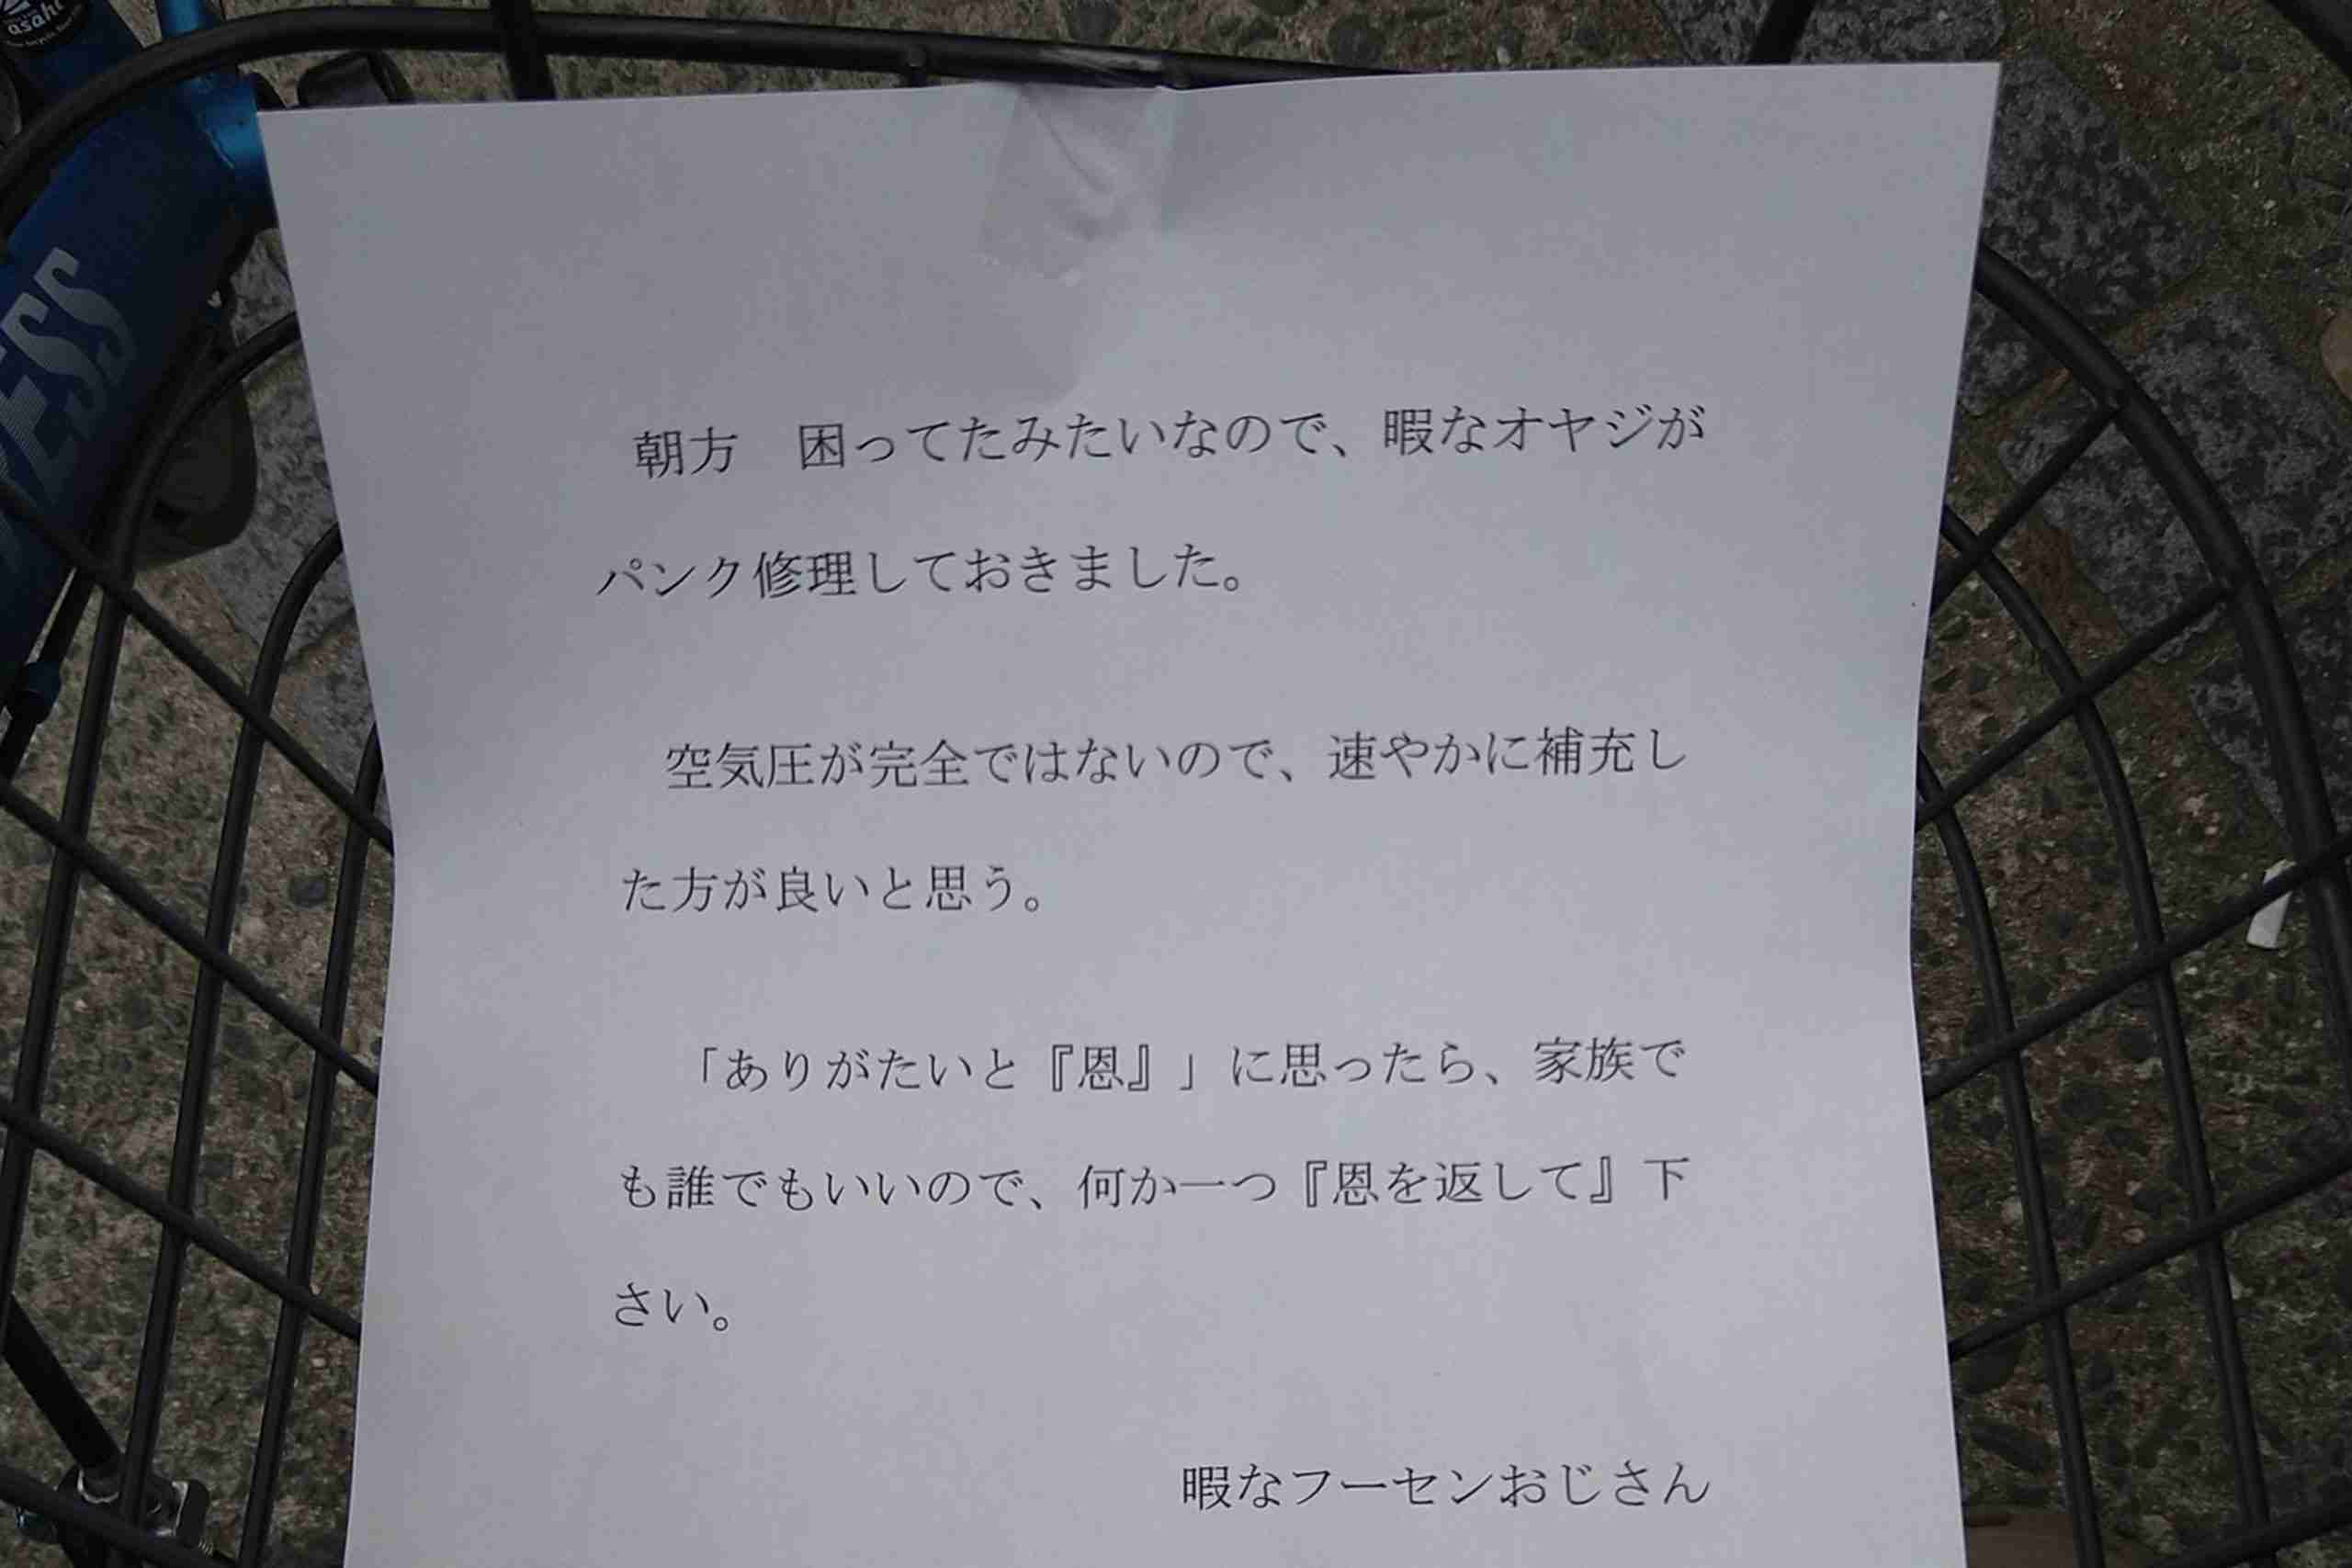 asahi
ESS
朝方　困ってたみたいなので、暇なオヤジが
パンク修理しておきました。
空気圧が完全ではないので、速やかに補充し
た方が良いと思う。
「ありがたいと『恩』」に思ったら、家族で
も誰でもいいので、何か一つ『恩を返して』下
さい。
暇なフーセンおじさん